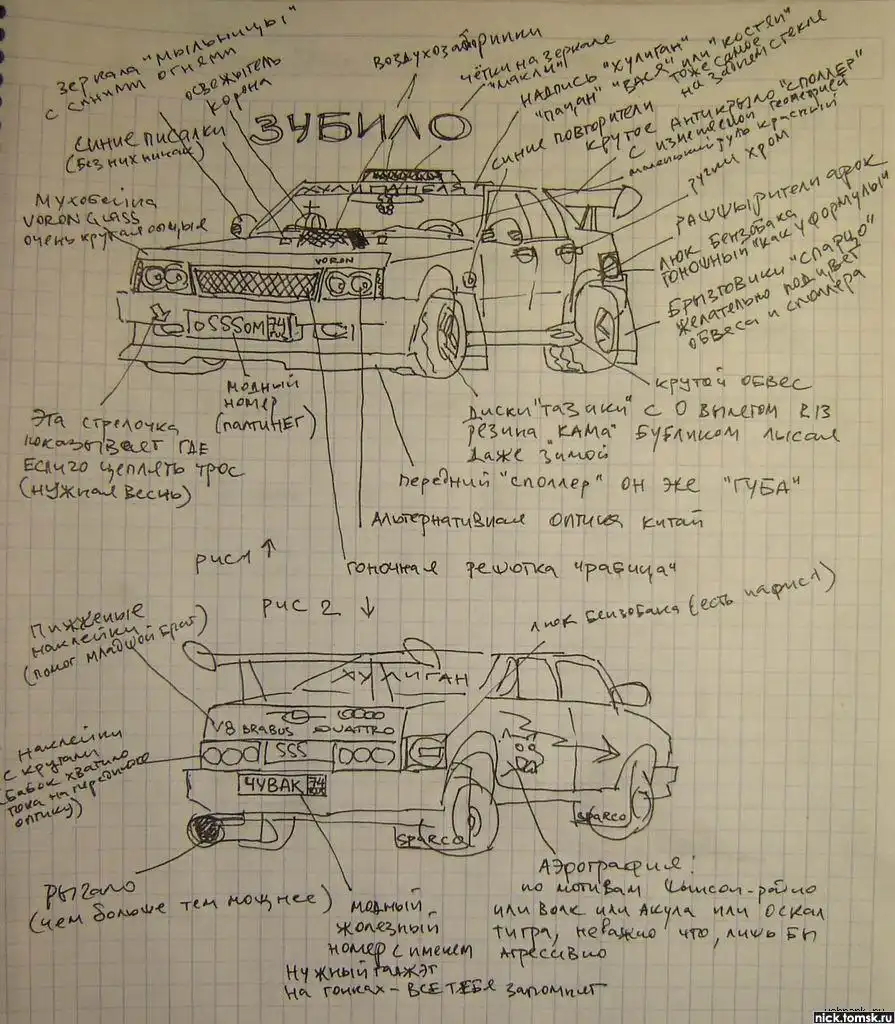 зеркала "мыльницы"
с синими огнями
освежитель
корона
воздухозаборники
чётки на зеркале
"макли"
надпись "хулиган"
"пацан" "вася" или "кости"
тоже самое
на заднем стекле
синие повторители
крутое антикрыло "споллер"
с изменяемой геометрией
маленький руль красный
ручки хром
рашшырители арок
люк бензобака
гоночный "как у формулы"
брызговики "спарцо"
желательно под цвет
обвеса и споллера
синие писалки
(без них никак)
мухобейка
VORON GLASS
очень крутая опция
ЗУБИЛО
VORON
оSSSом 74
эта стрелочка
показывает где
если го цеплять трос
(нужная весчь)
модный
номер
(палтинег)
крутой обвес
диски "тазики" с 0 вылетом R13
резина "кама" бубликом лысая
даже зимой
передний "споллер" он же "губа"
альтернативная оптика китай
гоночная решотка "рабица"
рис 1 ↑
рис 2 ↓
пижженые
наклейки
(помог младшой брат)
люк бензобака (есть на рис 1)
хулиган
V8 BRABUS QUATTRO
SSS
ЧУВАК 74
SPARCO
SPARCO
наклейки
с кругами
(бабок хватило
пока на переднюю
оптику)
рыгало
(чем больше тем мощнее)
модный
жолезный
номер с именем
нужный гаджэт
на гонках - все тебя запомнят
аэрография:
по мотивам
или волк или акула или оскал
тигра, неважно что, лишь бы
агрессивно
nick.tomsk.ru